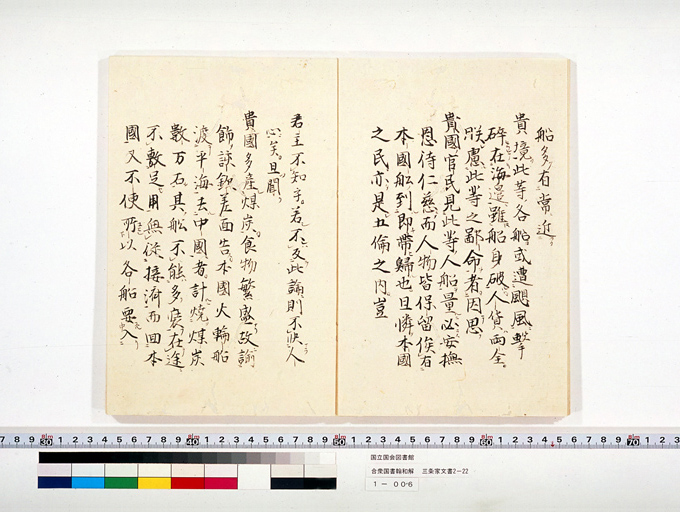 船多有常近
貴境此等各船或遭颶風擊
碎在海邉雖船身破人貨両全
朕慮此等之鄙命者因思
貴國官民見此等人船量必安撫
恩待仁慈而人物皆保留俟有
本國舩到即帶歸也且憐本國
之民亦是五倫之内豈
君主不知乎若不及此論則不快人
心矣且聞
貴國多産煤炭食物繁盛故諭
飾諒欽差面告本國火輪船
渡平海去中國者計燒煤炭
數万石其舩不能多裝在途
不敷足用無從接濟而回本
國又不便所以各船要入
国立国会図書館
合衆国書翰和解 三条家文書2-22
1- 006